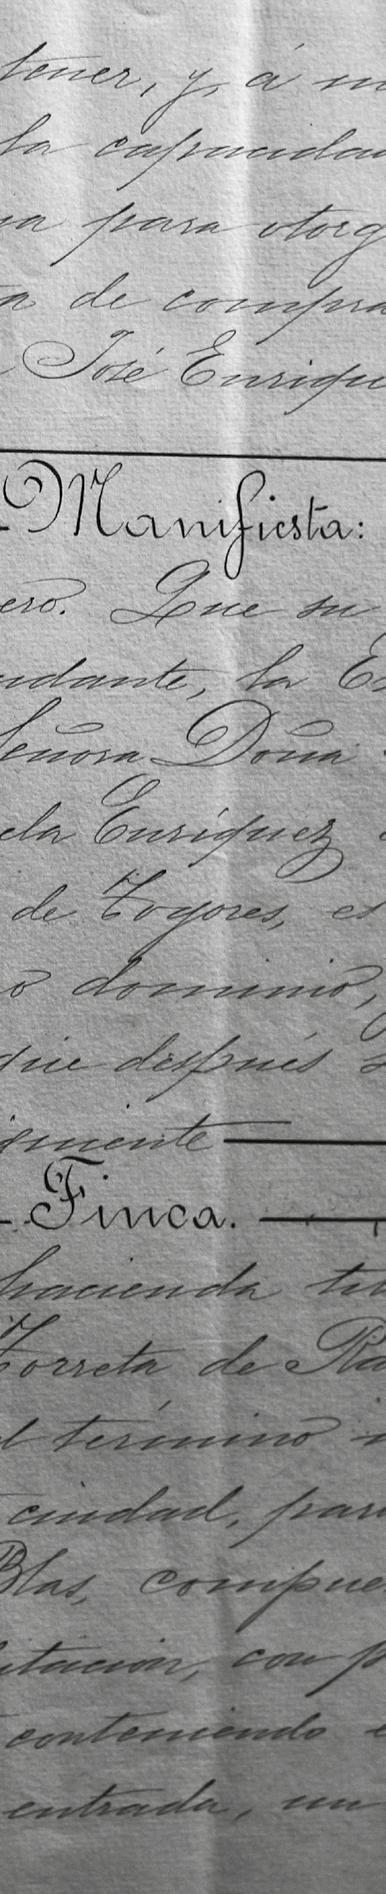 tener, y, á m
la capacidad
na para otorg
ta de compra
José Enriqu
Manifiesta:
ero. Que su
ndante, la E
Señora Doña
ela Enriquez
de Togores, es
o dominio,
que después s
iguiente
Finca.
hacienda tit
Torreta de Ra
el término m
ciudad, par
Blas, compue
itación, con p
conteniendo e
entrada, un